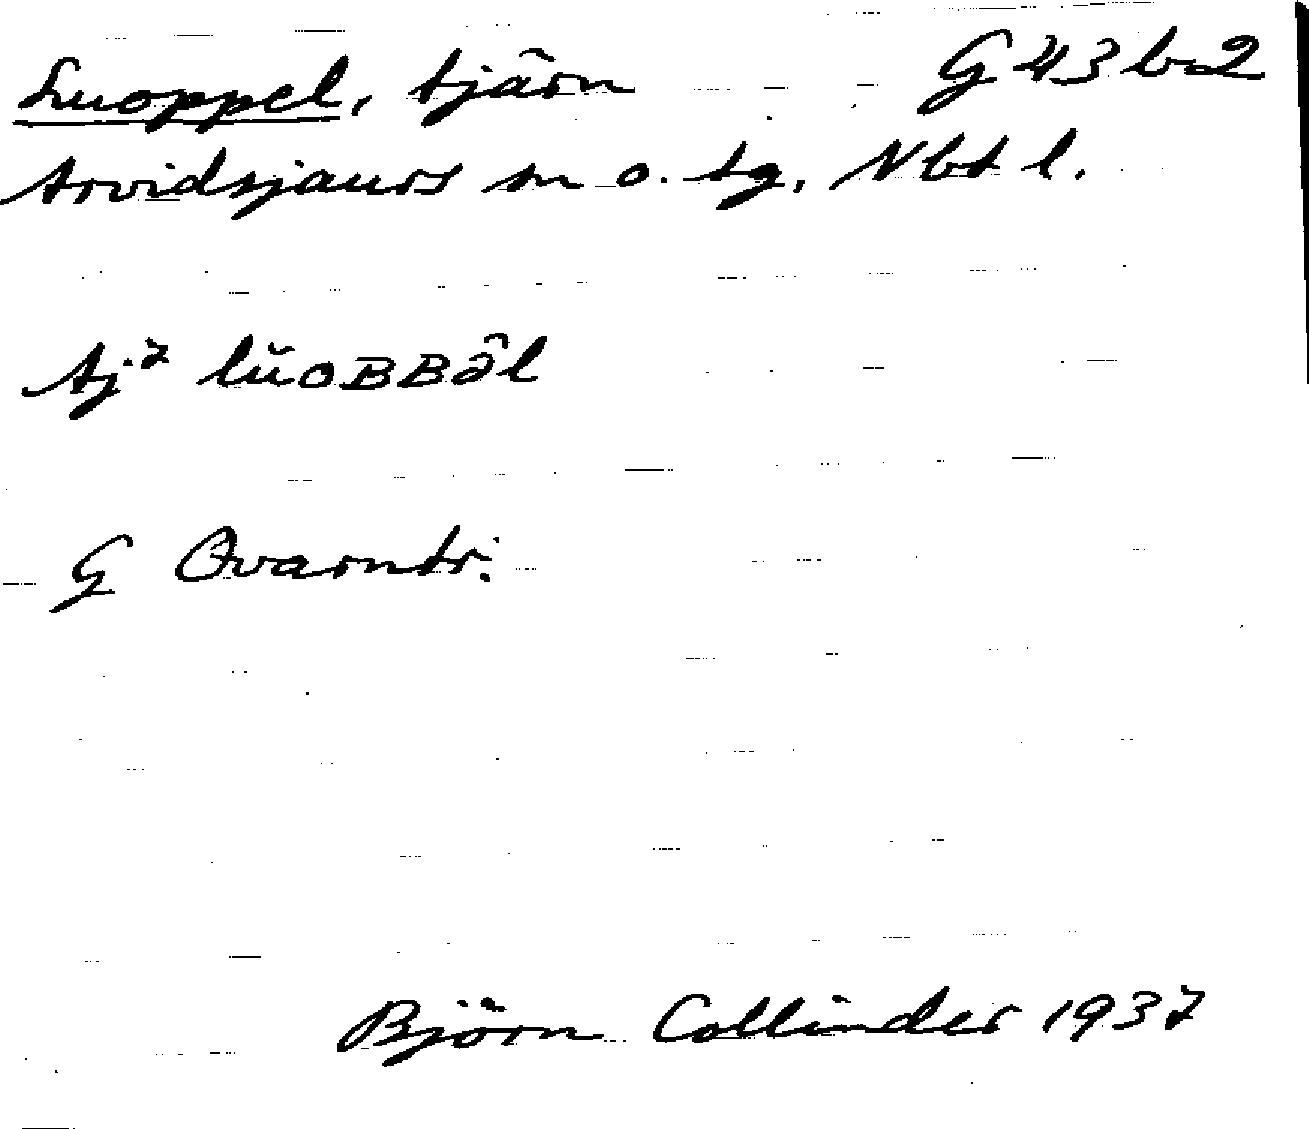 Luoppel, tjärn G 43 b 2
Arvidsjaurs sn o. tg, Nbt l.
Aj⁷ lŭoʙʙə̑l
G Qvarntr:
Björn Collinder 1937